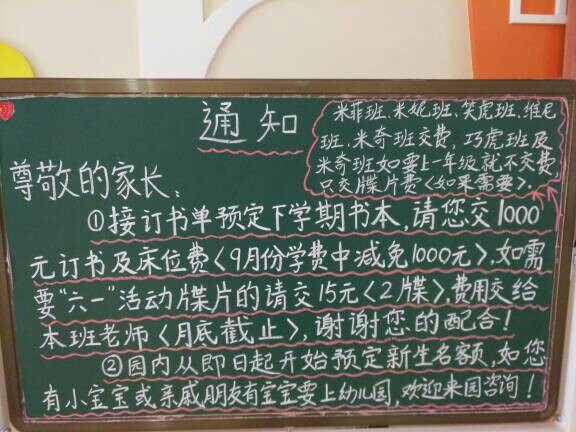 通知
米菲班、米妮班、笑虎班、维尼
班、米奇班交费，巧虎班及
米奇班如要上一年级就不交费，
只交牒片费〈如果需要〉.
尊敬的家长：
①接订书单预定下学期书本，请您交1000
元订书及床位费〈9月份学费中减免1000元〉，如需
要“六一”活动牒片的请交15元〈2牒〉，费用交给
本班老师〈月底截止〉，谢谢您的配合！
②园内从即日起开始预定新生名额，如您
有小宝宝或亲戚朋友有宝宝要上幼儿园，欢迎来园咨询！